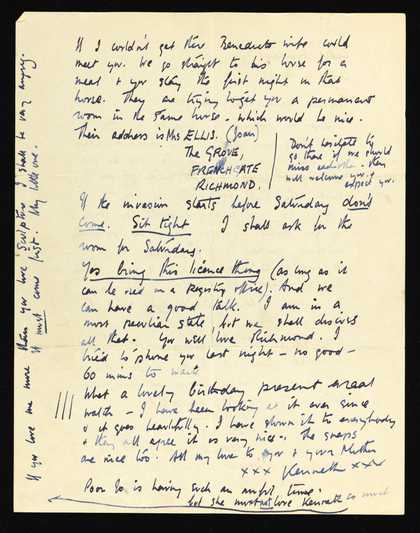 If I couldn't get there Benedicto's wife could
meet you. We go straight to his house for a
meal & you stay the first night in that
house. They are trying to get you a permanent
room in the same house – which would be nice.
Their address is Mrs ELLIS. (Joan)
The GROVE,
FRENCHGATE
RICHMOND.
Don't hesitate to
go there if we should
miss each other. They
will welcome you &
expect you.
If the invasion starts before Saturday don't
come. Sit tight I shall ask for the
room for Saturday.
Yes bring this licence thing (as long as it
can be used in a registry office). And we
can have a good talk. I am in a
most peculiar state, but we shall discuss
all that. You will love Richmond. I
tried to 'phone you last night – no good –
60 mins to wait
What a lovely birthday present a real
watch – I have been looking at it ever since
& it goes beautifully. I have shown it to everybody
& they all agree it is very nice. The snaps
are nice too. All my love to you & your Mother
xxx Kenneth xxx
Poor Jo is having such an awful time.
but she must not love Kenneth as much
If you love me more than you love Sculpture I shall be very angry.
It must come first. My little one.